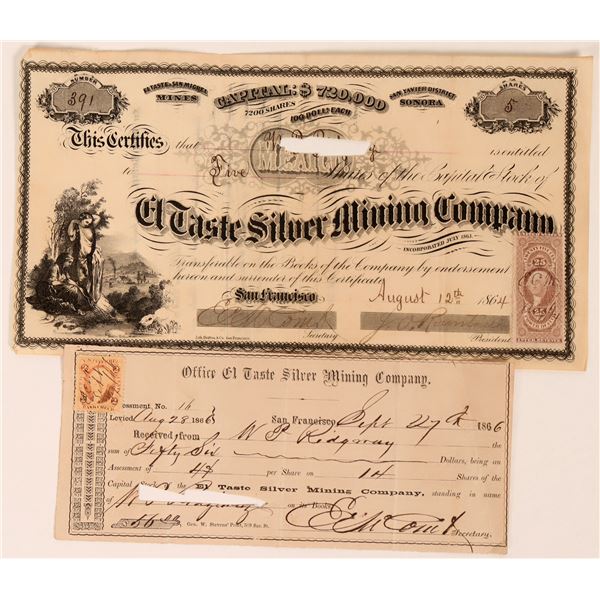 NUMBER
391
EL TASTE & SAN MIGUEL
MINES
CAPITAL: $720,000
7200 SHARES
100 DOLLS EACH
SAN XAVIER DISTRICT
SONORA
SHARES
5
This Certifies that is entitled
to Five Shares of the Capital Stock of
MEXICO
El Taste Silver Mining Company
INCORPORATED JULY 1863.
Transferable on the Books of the Company by endorsement
hereon and surrender of this Certificate
San Francisco August 12th 1864
Secretary
President
25
25
INTER. REVENUE
Office El Taste Silver Mining Company.
sessment No. 16
Levied Aug 28 1866 San Francisco, Sept 27th 1866
Received from W P Ridgway
sum of Fifty Six Dollars, being an
Assessment of 4$ per Share on 14 Shares of the
Capital Stock of the El Taste Silver Mining Company, standing in name
of on its Books
$56.00
Geo. W. Stevens' Print, 519 San. St.
Secretary.